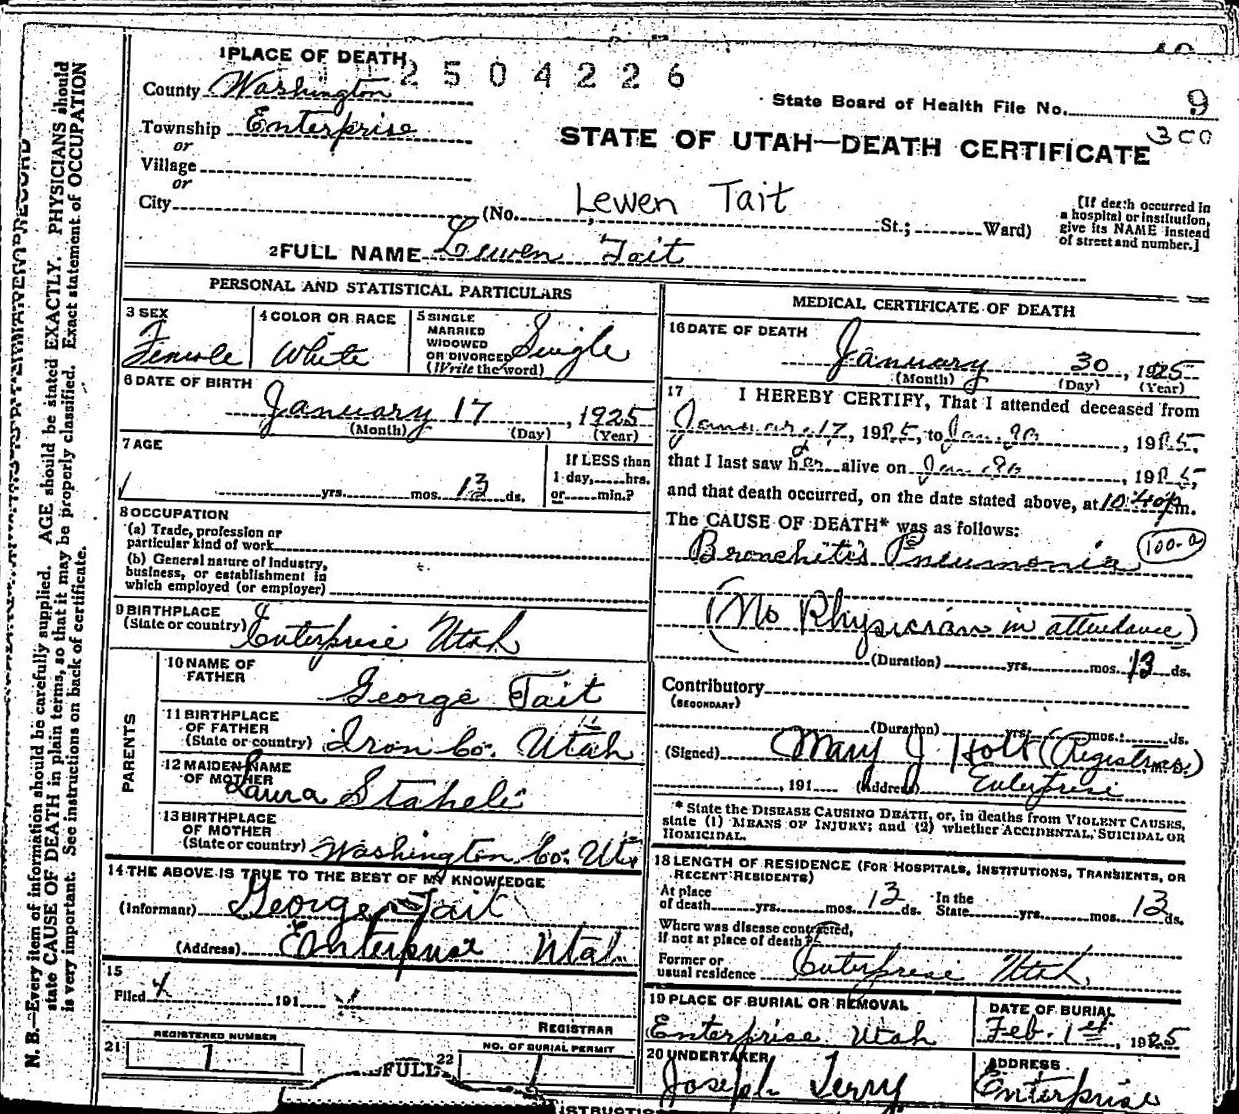 1 PLACE OF DEATH
2504226
County Washington
State Board of Health File No. 9
300
Township Enterprise
STATE OF UTAH—DEATH CERTIFICATE
or
Village
or
City (No. Lewen Tait St.; Ward)
[If death occurred in
a hospital or institution,
give its NAME instead
of street and number.]
2 FULL NAME Lewen Tait
PERSONAL AND STATISTICAL PARTICULARS
3 SEX
Female
4 COLOR OR RACE
White
5 SINGLE
MARRIED
WIDOWED
OR DIVORCED
(Write the word)
Single
6 DATE OF BIRTH
January 17, 1925
(Month) (Day) (Year)
7 AGE
yrs. mos. 13 ds.
If LESS than
1 day, hrs.
or min.?
8 OCCUPATION
(a) Trade, profession or
particular kind of work
(b) General nature of Industry,
business, or establishment in
which employed (or employer)
9 BIRTHPLACE
(State or country) Enterprise Utah
PARENTS
10 NAME OF
FATHER
George Tait
11 BIRTHPLACE
OF FATHER
(State or country) Iron Co. Utah
12 MAIDEN NAME
OF MOTHER
Laura Staheli
13 BIRTHPLACE
OF MOTHER
(State or country) Washington Co. Uta
14 THE ABOVE IS TRUE TO THE BEST OF MY KNOWLEDGE
(Informant) George Tait
(Address) Enterprise Utah
15
Filed 191
REGISTRAR
21 REGISTERED NUMBER
1
22 NO. OF BURIAL PERMIT
1
FULL
MEDICAL CERTIFICATE OF DEATH
16 DATE OF DEATH
January 30, 1925
(Month) (Day) (Year)
17 I HEREBY CERTIFY, That I attended deceased from
January 17, 1925, to Jan 30, 1925,
that I last saw her alive on Jan 30, 1925,
and that death occurred, on the date stated above, at 10:40 p m.
The CAUSE OF DEATH* was as follows:
Bronchitis Pneumonia 100-a
(No Physician in attendance)
(Duration) yrs. mos. 13 ds.
Contributory
(SECONDARY)
(Duration) yrs. mos. ds.
(Signed) Mary J Holt (Registrar) M.D.
, 191 (Address) Enterprise
* State the DISEASE CAUSING DEATH, or, in deaths from VIOLENT CAUSES,
state (1) MEANS OF INJURY; and (2) whether ACCIDENTAL, SUICIDAL OR
HOMICIDAL.
18 LENGTH OF RESIDENCE (FOR HOSPITALS, INSTITUTIONS, TRANSIENTS, OR
RECENT RESIDENTS)
At place
of death yrs. mos. 13 ds.
In the
State yrs. mos. 13 ds.
Where was disease contracted,
if not at place of death?
Former or
usual residence Enterprise Utah.
19 PLACE OF BURIAL OR REMOVAL
Enterprise Utah
DATE OF BURIAL
Feb. 1st, 1925
20 UNDERTAKER
Joseph Terry
ADDRESS
Enterprise
N. B.—Every item of information should be carefully supplied. AGE should be stated EXACTLY. PHYSICIANS should
state CAUSE OF DEATH in plain terms, so that it may be properly classified. Exact statement of OCCUPATION
is very important. See instructions on back of certificate.